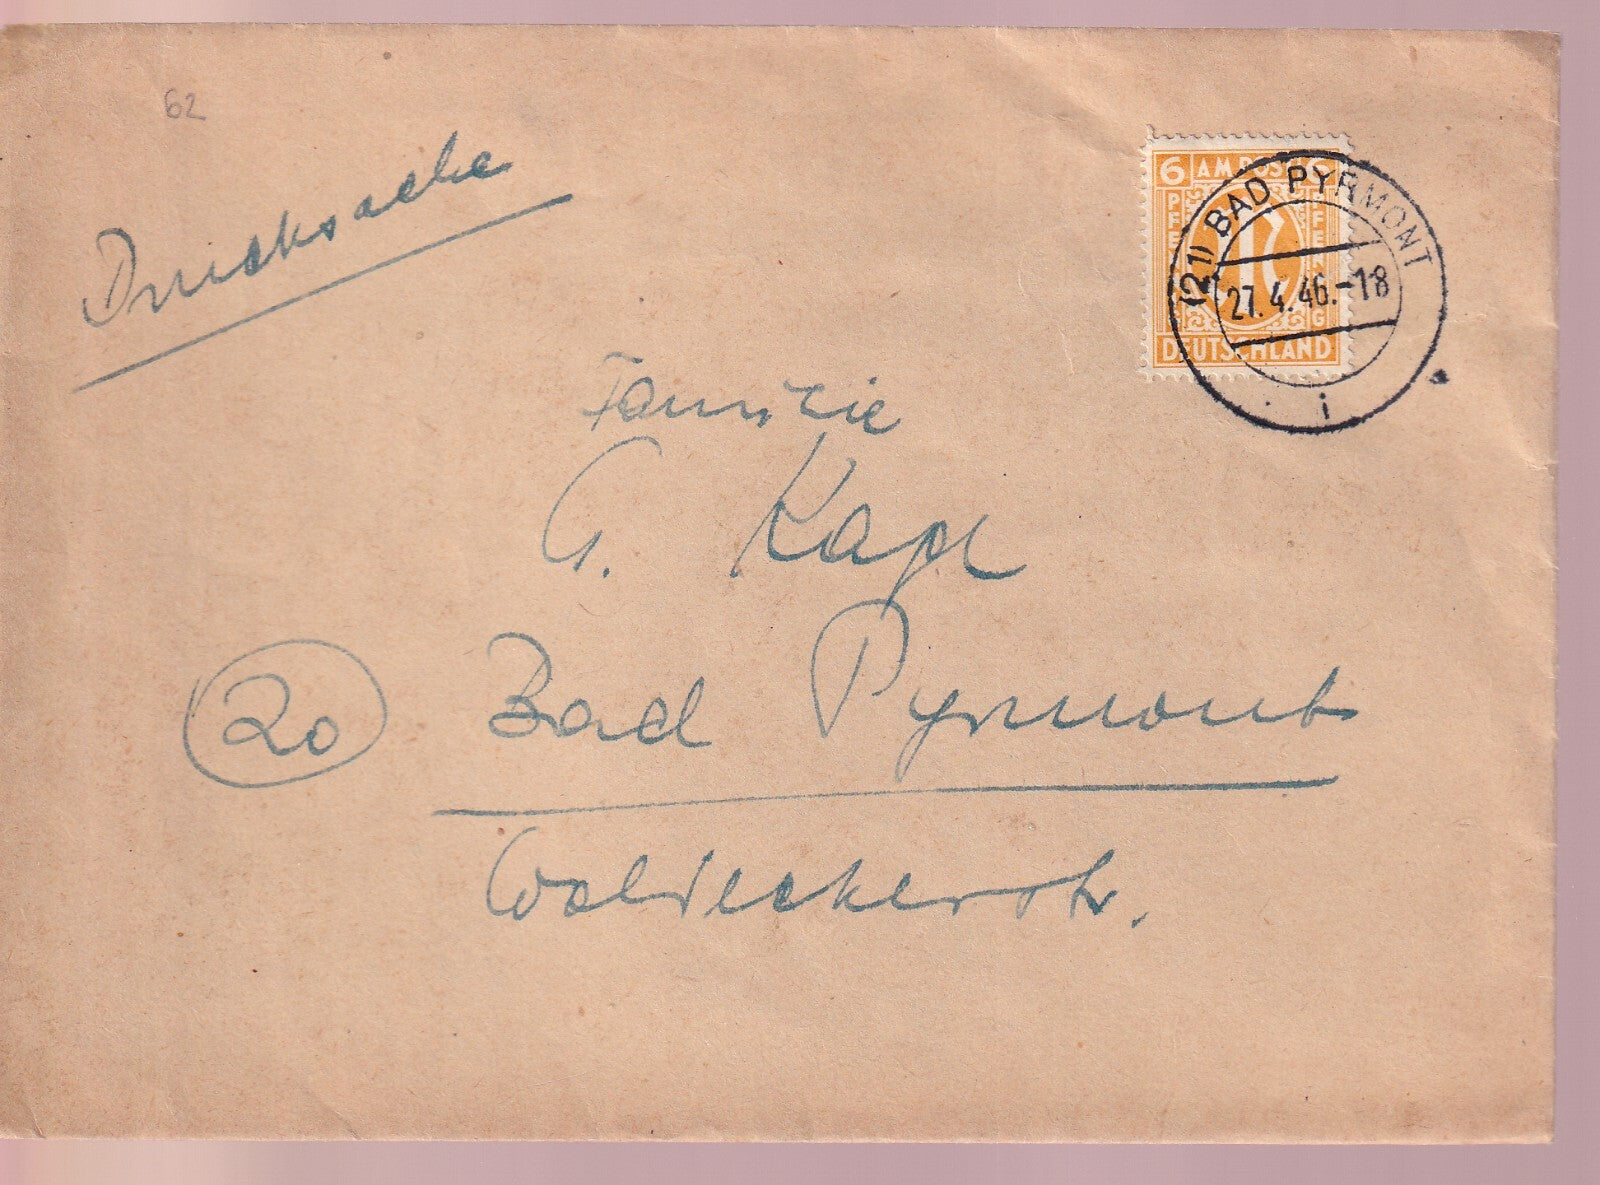 62
Drucksache
6 AM POST 6
PFENNIG
PFENNIG
DEUTSCHLAND
(21) BAD PYRMONT
27.4.46.-18
i
Familie
G. Kapl
20 Bad Pyrmont
Waldeckerstr.